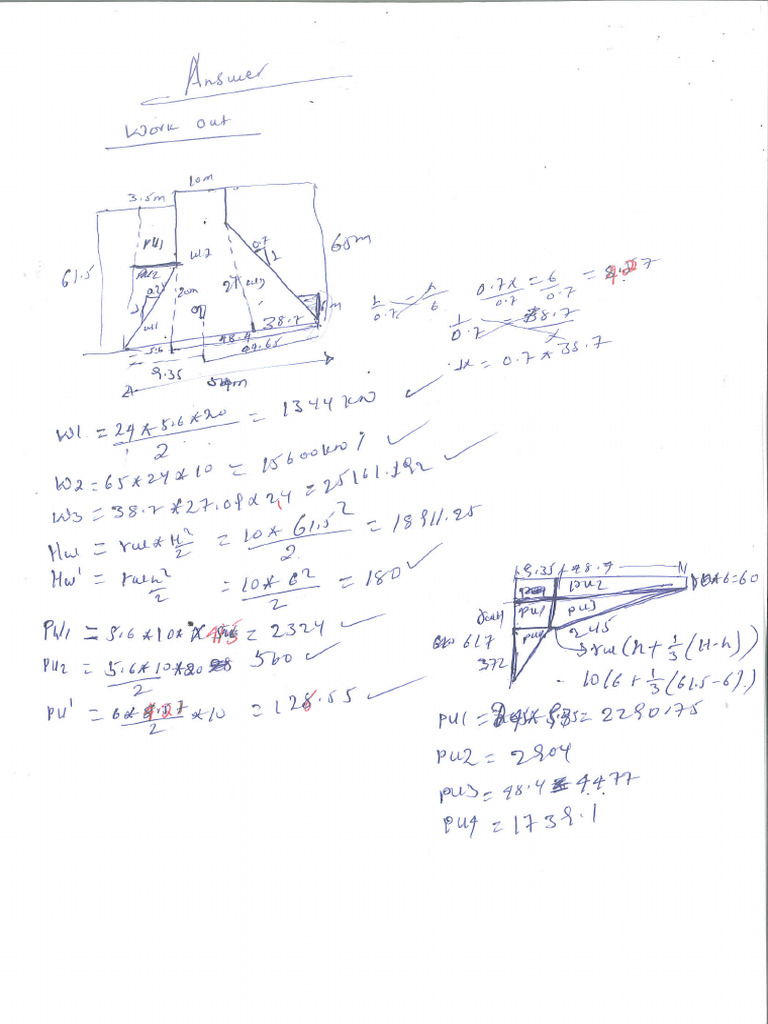 Answer
Work out
10m
3.5m
PW1
W2
61.5
65m
0.7
1
20m
W3
W1
6m
38.7
5.6
48.4
47.65
9.35
1/0.7
6
0.7x/0.7 = 6/0.7
1/0.7 = 38.7/x
x = 0.7 * 38.7
W1 = 24*5.6*20/2 = 1344 KN ✓
W2 = 65*24*10 = 15600 KN ✓
W3 = 38.7*27.09*24 = 25161.192 ✓
Hw = rw*H²/2 = 10*61.5²/2 = 18911.25
Hw' = rwh²/2 = 10*6²/2 = 180 ✓
PW1 = 5.6*10* 41.5 = 2324 ✓
PW2 = 5.6*10*20/2 560 ✓
PW' = 6*4.27/2 *10 = 128.55 ✓
9.35 48.4
PU2
*6=60
PU1
PU3
PU4
245
617
372
rw(h+1/3(H-h))
10(6+1/3(61.5-6))
PU1 = = 2290.75
PU2 = 2904
PU3 = 48.4 4477
PU4 = 1739.1